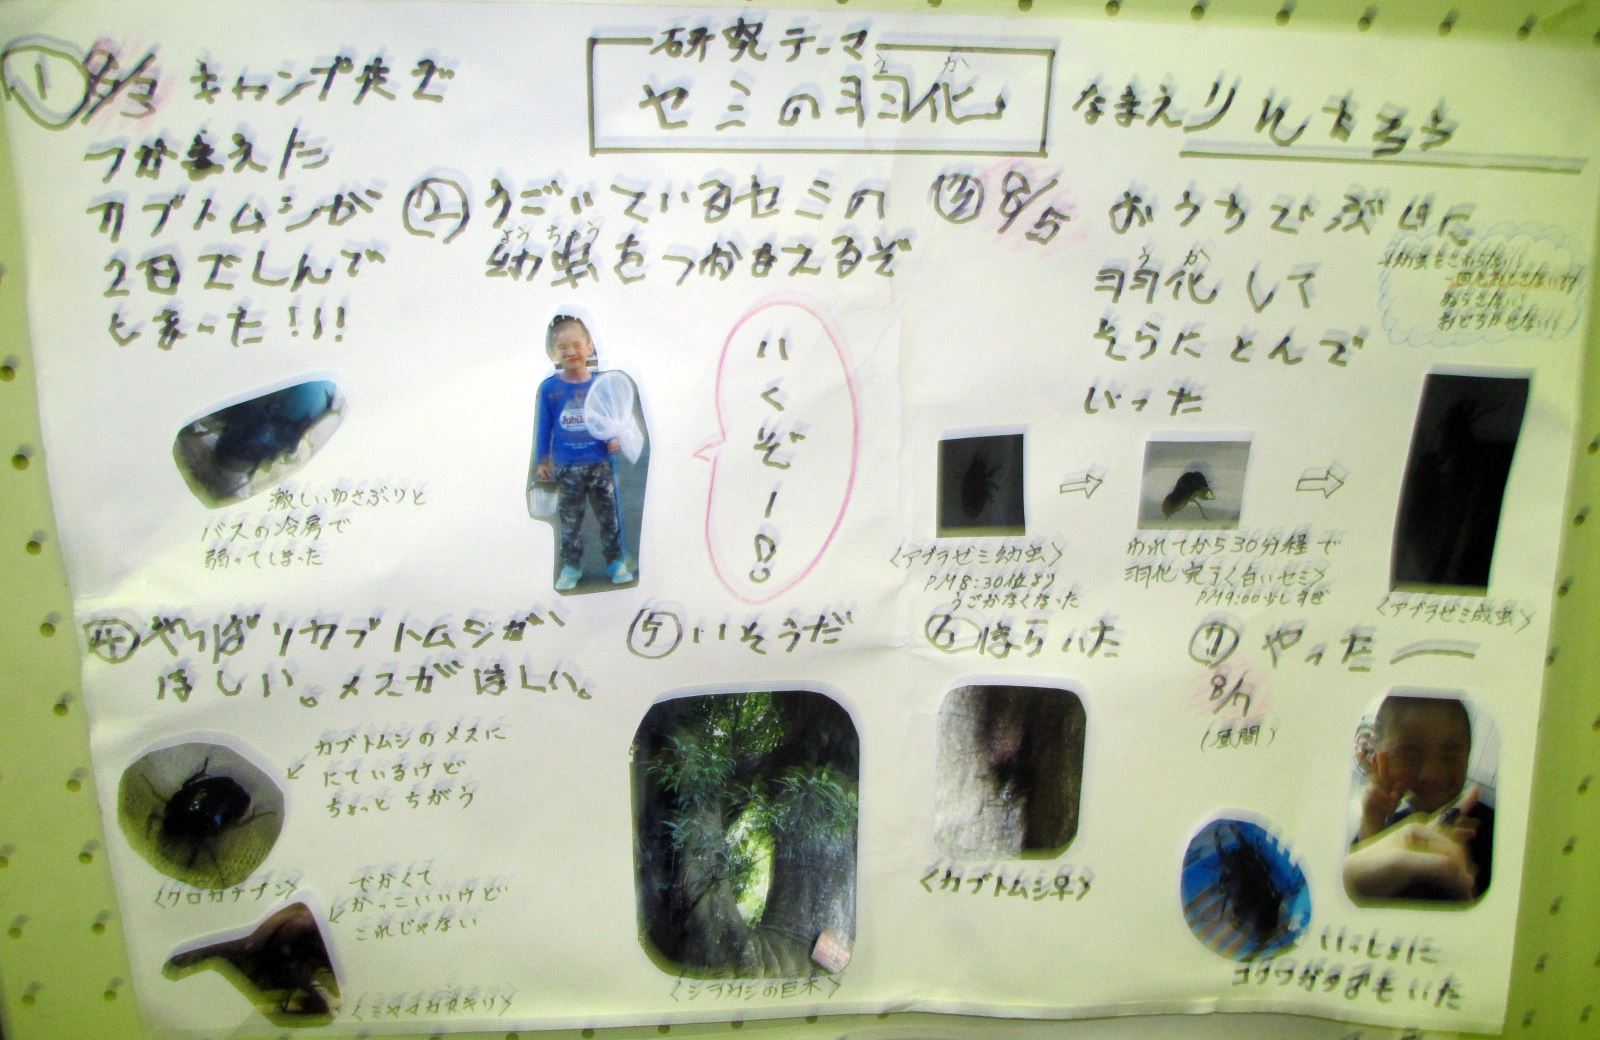 研究テーマ
セミの羽化
うか
なまえ りんたろう
① 8/3 キャンプ先で
つかまえた
カブトムシが
2日でしんで
しまった!!!
激しいゆさぶりと
バスの冷房で
弱ってしまった
② うごいているセミの
ようちゅう
幼虫をつかまえるぞ
Jubilee
いくぞー!!
③ 8/5 おうちで ぶじに
うか
羽化して
そらに とんで
いった
幼虫をさわらない!
おとさない!!
ぬらさない!
おどろかせない!
<アブラゼミ幼虫>
PM8:30位より
うごかなくなった
われてから30分程で
羽化完了<白いセミ>
PM9:00少しすぎ
<アブラゼミ成虫>
④ やっぱりカブトムシが
ほしい。メスがほしい。
カブトムシのメスに
にているけど
ちょっと ちがう
<クロカナブン>
でかくて
かっこいいけど
これじゃない
<ミヤマカミキリ>
⑤ いそうだ
<シラカシの巨木>
⑥ ほら いた
<カブトムシ♀>
⑦ やったー
8/7
(昼間)
いっしょに
コクワガタ♂もいた